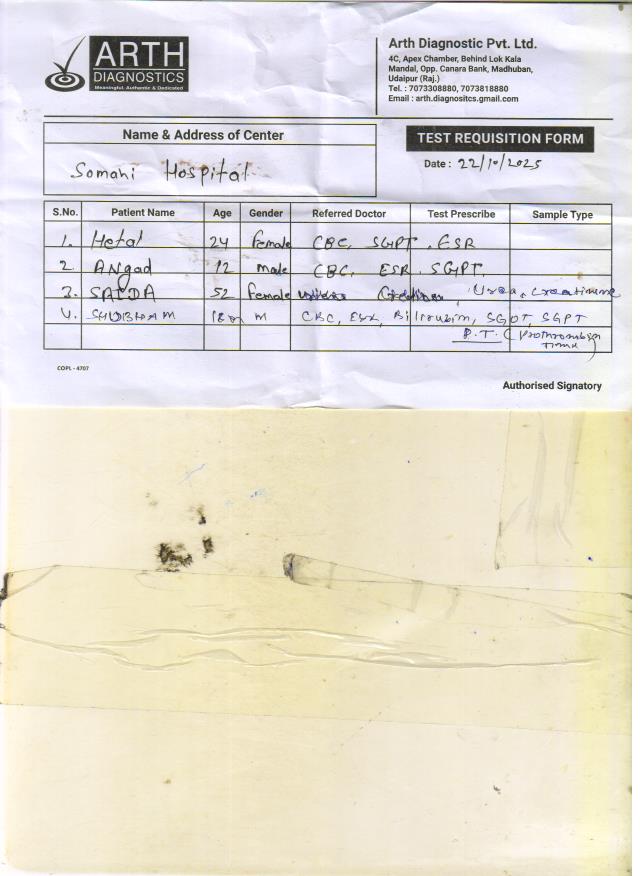 ARTH
DIAGNOSTICS
Meaningful, Authentic & Dedicated
Arth Diagnostic Pvt. Ltd.
4C, Apex Chamber, Behind Lok Kala
Mandal, Opp. Canara Bank, Madhuban,
Udaipur (Raj.)
Tel. : 7073308880, 7073818880
Email : arth.diagnositcs.gmail.com
Name & Address of Center
TEST REQUISITION FORM
Somani Hospital
Date : 22/10/2025
S.No. Patient Name Age Gender Referred Doctor Test Prescribe Sample Type
1. Hetal 24 female CBC, SGPT, ESR
2. Angad 12 male CBC, ESR, SGPT
3. SAIDA 52 female Urea, Creatinine
4. SHUBHAM 18 M CBC, ESR, Bilirubin, SGOT, SGPT
P.T. (Prothrombin
COPL - 4707
Authorised Signatory